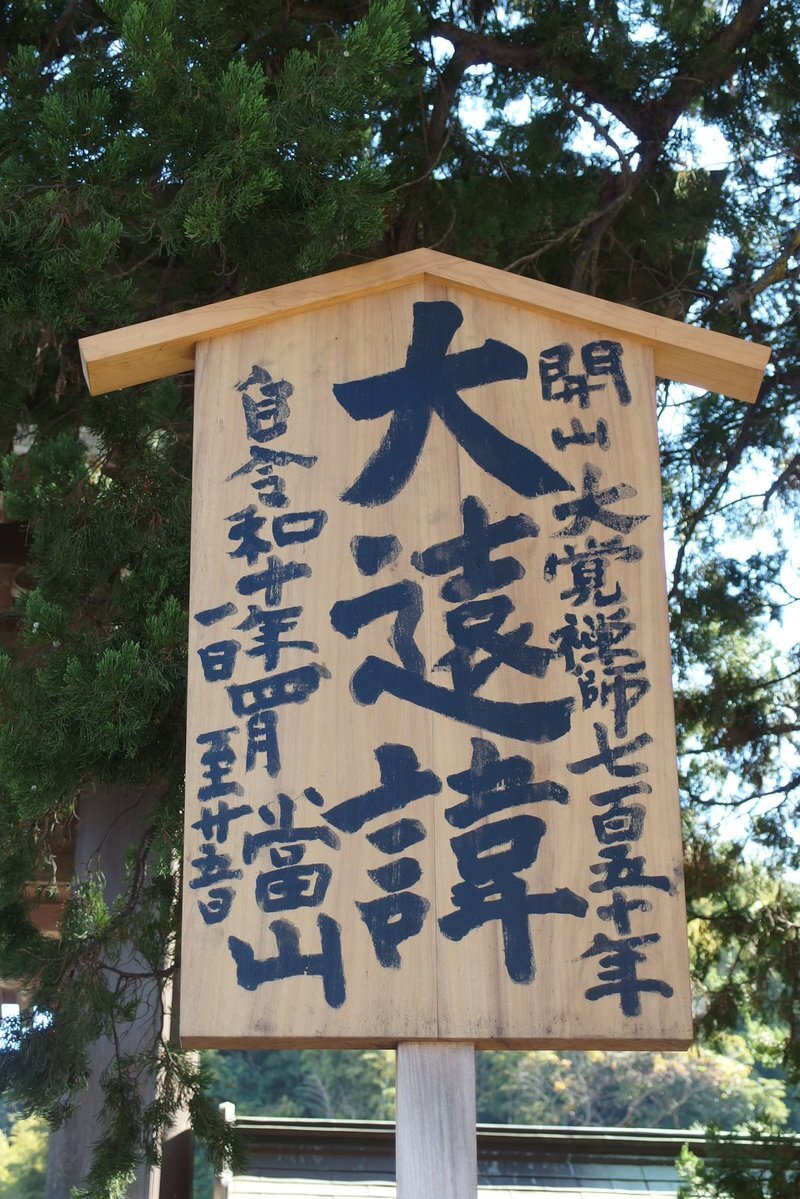 開山大覚禅師七百五十年
大遠諱
自令和十年四月
一日
至廿五日
當山